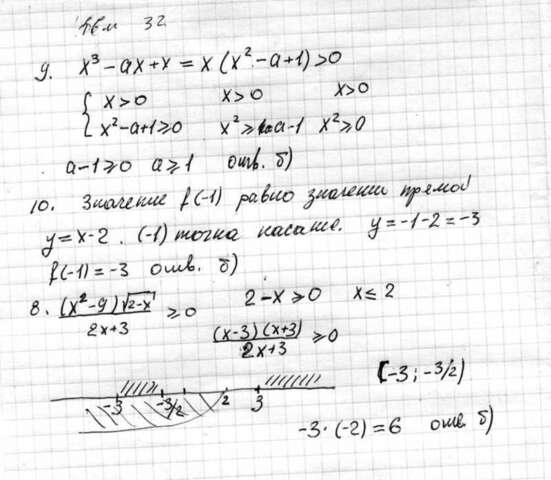 32
9. x³ - ax + x = x (x² - a + 1) > 0
{ x > 0 x > 0 x > 0
x² - a + 1 ≥ 0 x² ≥ a - 1 x² ≥ 0
a - 1 ≥ 0 a ≥ 1 отв. б)
10. Значение f(-1) равно значении прямой
y = x - 2. (-1) точка касание. y = -1 - 2 = -3
f(-1) = -3 отв. б)
8. (x² - 9) √2-x / 2x + 3 ≥ 0 2 - x ≥ 0 x ≤ 2
(x - 3)(x + 3) / 2x + 3 ≥ 0
-3 -3/2 2 3 [-3; -3/2)
-3 · (-2) = 6 отв. б)